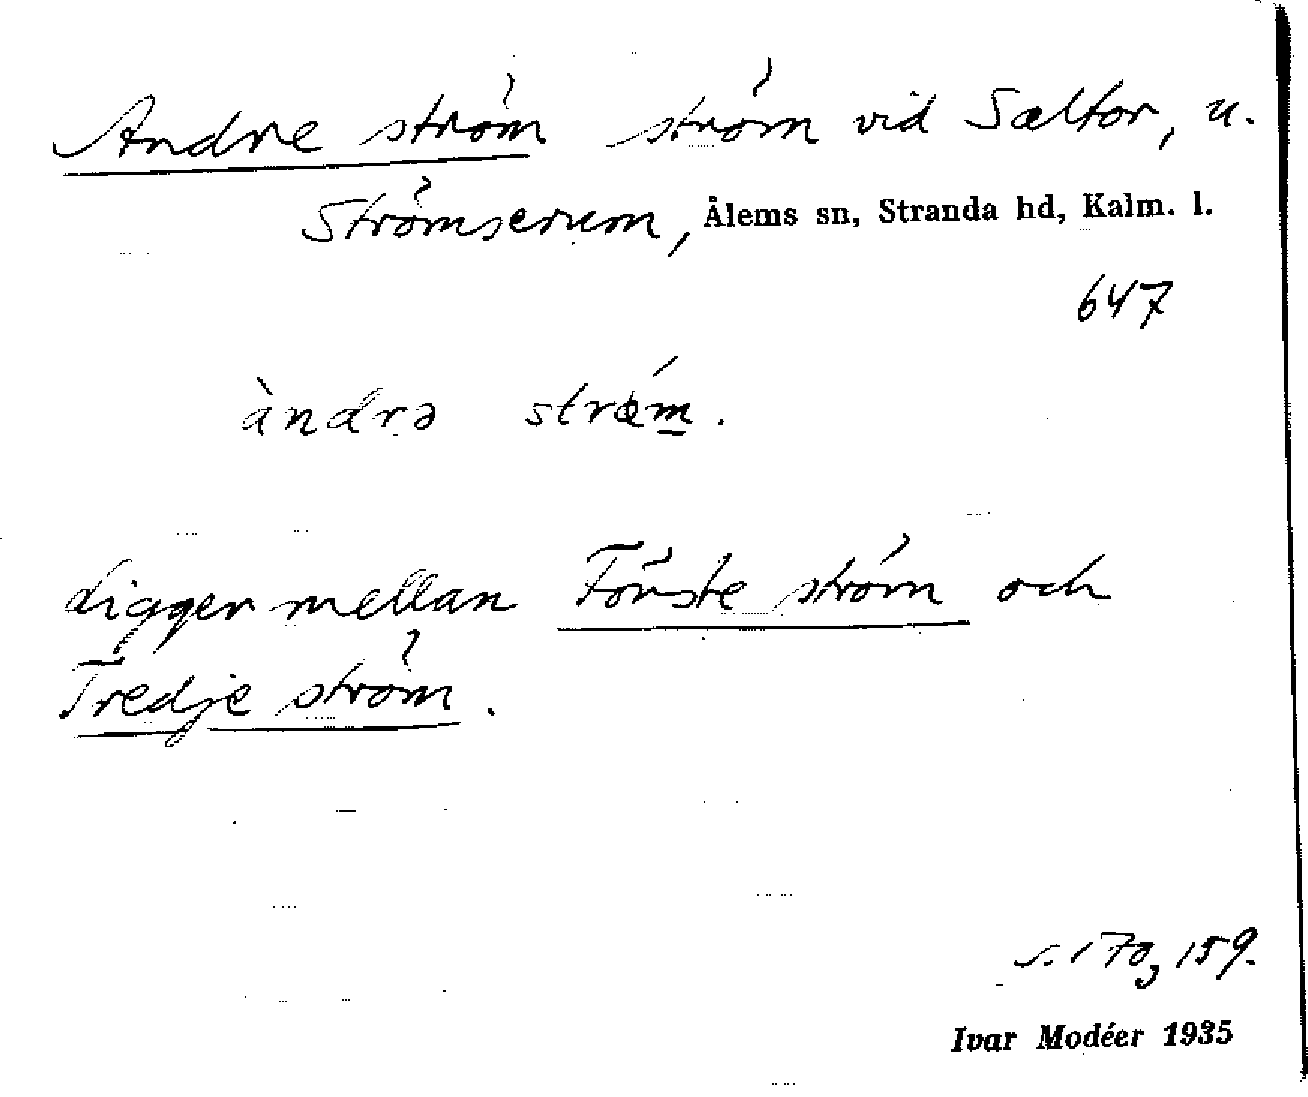 Andre ström ström vid Saltor, u.
Strömserum, Ålems sn, Stranda hd, Kalm. l.
647
àndrə strǿm.
Ligger mellan Förste ström och
Tredje ström.
s. 170, 159.
Ivar Modéer 1935